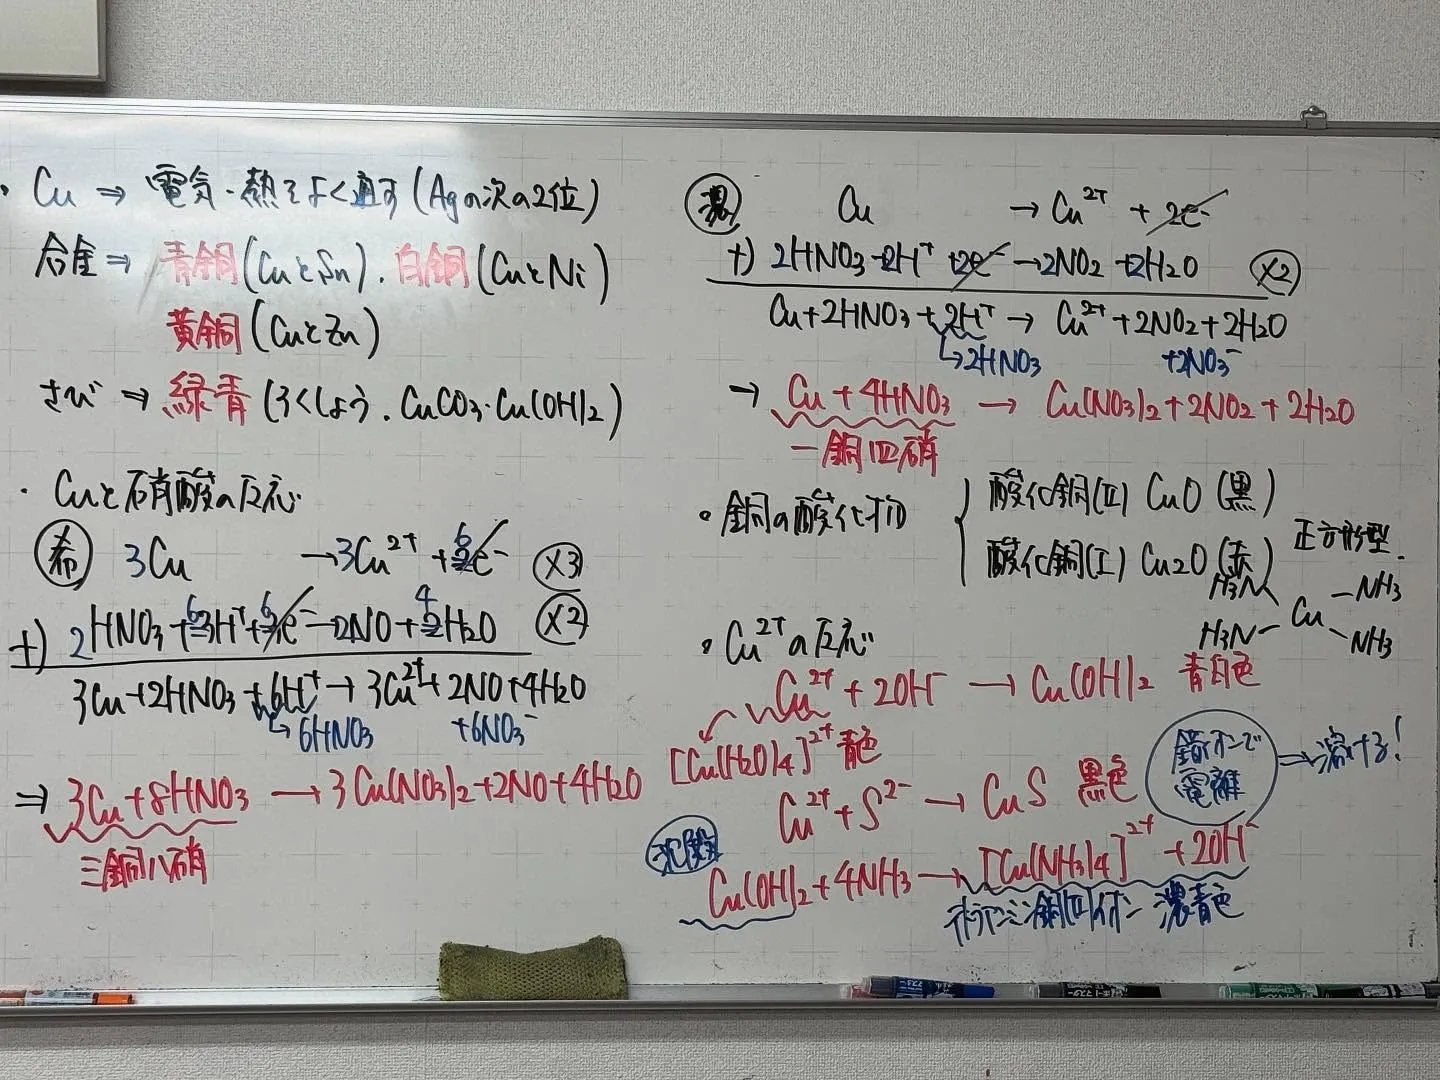 ・Cu ⇒ 電気・熱をよく通す(Agの次の2位)
合金⇒ 青銅(CuとSn).白銅(CuとNi)
黄銅(CuとZn)
さび ⇒ 緑青(ろくしょう. CuCO3・Cu(OH)2)
・Cuと硝酸の反応
希 3Cu → 3Cu²⁺ + 6e⁻ ×3
+) 2HNO3 + 6H⁺ + 6e⁻ → 2NO + 4H2O ×2
3Cu + 2HNO3 + 6H⁺ → 3Cu²⁺ + 2NO + 4H2O
↳ 6HNO3 +6NO3⁻
⇒ 3Cu + 8HNO3 → 3Cu(NO3)2 + 2NO + 4H2O
三銅八硝
濃 Cu → Cu²⁺ + 2e⁻
+) 2HNO3 + 2H⁺ + 2e⁻ → 2NO2 + 2H2O ×2
Cu + 2HNO3 + 2H⁺ → Cu²⁺ + 2NO2 + 2H2O
↳ 2HNO3 +2NO3⁻
→ Cu + 4HNO3 → Cu(NO3)2 + 2NO2 + 2H2O
一銅四硝
・銅の酸化物 { 酸化銅(Ⅱ) CuO (黒)
酸化銅(Ⅰ) Cu2O (赤)
正方形型.
H3N NH3
Cu
H3N NH3
・Cu²⁺の反応
Cu²⁺ + 2OH⁻ → Cu(OH)2 青白色
[Cu(H2O)4]²⁺ 青色
Cu²⁺ + S²⁻ → CuS 黒色
錯イオンで
電離
⇒溶ける!
沈殿
Cu(OH)2 + 4NH3 → [Cu(NH3)4]²⁺ + 2OH⁻
テトラアンミン銅(Ⅱ)イオン 濃青色